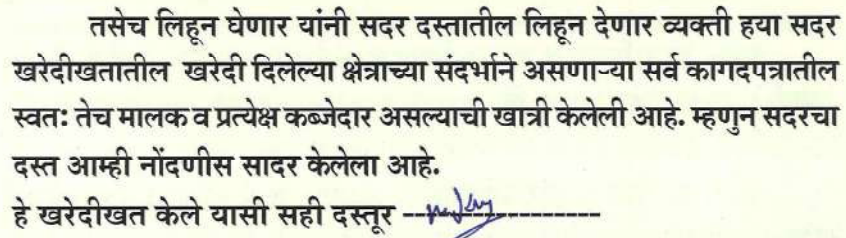 तसेच लिहून घेणार यांनी सदर दस्तातील लिहून देणार व्यक्ती हया सदर
खरेदीखतातील खरेदी दिलेल्या क्षेत्राच्या संदर्भाने असणाऱ्या सर्व कागदपत्रातील
स्वतः तेच मालक व प्रत्येक्ष कब्जेदार असल्याची खात्री केलेली आहे. म्हणुन सदरचा
दस्त आम्ही नोंदणीस सादर केलेला आहे.
हे खरेदीखत केले यासी सही दस्तूर -----------------